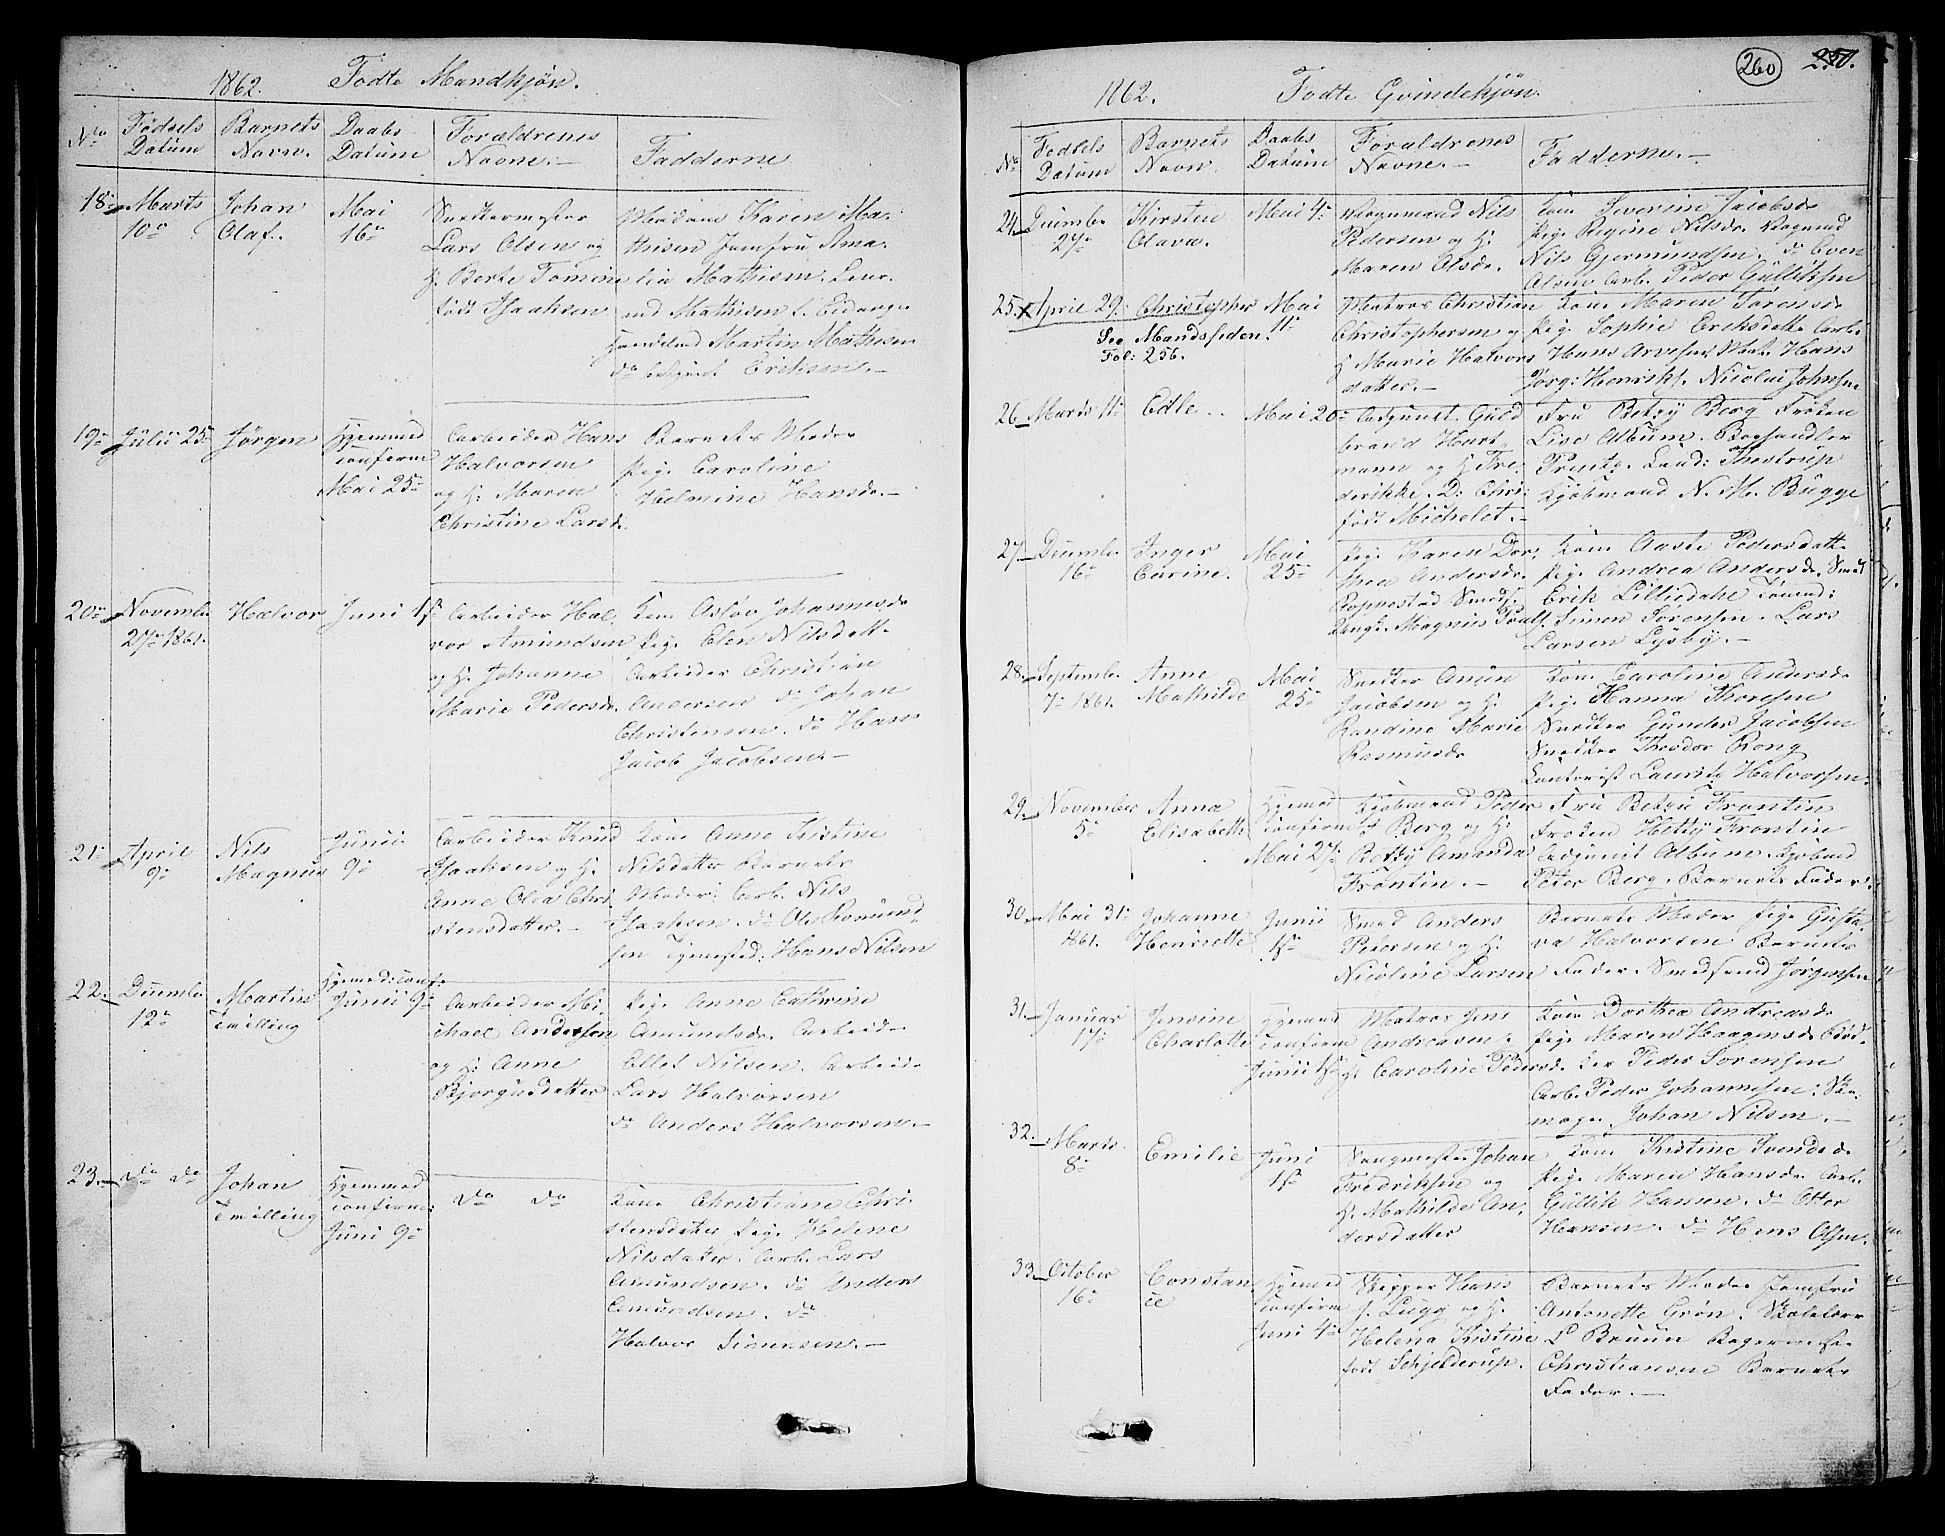 1862. Fødte Mandkjøn.
No
Fødsels Datum
Barnets Navn.
Daabs Datum
Forældrenes Navne.—
Fadderne
18
Marts 10de
Johan
Olaf.
Mai
16de
Snedkermester
Lars Olsen og
H. Berte Tomine
født Isaaksen
Madam Karen Ma-
thisen Jomfru Ama-
lia Mathisen
Mathisen f. Eidanger
Martin Mathisen
Eriksen.—
19
Julii 25
Jørgen
Hjemmed
confirm
Mai 25
Arbeider Hans
Halvorsen
og H. Maren
Christine Larsd.
Barnets Moder
Pige Caroline
Helmine Hansd.—
20
November
27 1861.
Halvor
Juni 1st
Arbeider Hal-
vor Amundsen
og H. Johanne
Marie Pedersd.
Kone Asløv Johannesd.
Pige Elen Nilsdatt.
Arbeider Christian
Andersen do Johan
Christensen. do Hans
Jacob Jacobsen.—
21
April
9
Nils
Magnus
Junii
9
Arbeider Knud
Isaaksen og H.
Anne Olea Chri-
stensdatter.—
Kone Anne Kistine
Nilsdatter Barnets
Moder: Arb. Nils
Isaaksen. do Ole Romund-
sen Hans Nilsen
22.
Decembe
12
Martin
Tvilling
Hjemmed: conf.
Junii 9
Arbeider Mi-
chael Andersen
og H. Anne
Bjørgusdatter
Pige Anne Cathrine
Amundsd. Arbeid.
Ellef Nilsen. Arbeid.
Lars Halvorsen
do Anders Halvorsen.—
23.
do do
Johan
Tvilling
Hjemmed
confirm:
Juni 9
do do
Kone Christiane Chri-
stensdater Pige Helene
Nilsdater: Arb. Lars
Amundsen. do Anders
Amundsen. do
Halvor Simensen.—
260
250.
1862. Fødte Qvindekjøn.
No
Fødsels Datum
Barnets Navn.
Daabs Datum
Forældrenes Navne.—
Fadderne.—
24
Decembe
27
Kirsten
Olava.
Mai 4
Vognmand Nils
Pedersen og H.
Maren Olsd.
Kone Severine Jacobsd.
Pige Regine Nilsd. Vognmd
Nils Gjermundsen. do Even
Olsen Arb. Peder Gulliksen
25. x
April 29.
Christopher
Mai
11
See Mandssiden.
Fol: 256.
Matros Christian
Christophersen og
H. Marie Halvors
datter.—
Kone Maren Sørensd.
Pige Sophie Eriksdatt. Arbei
Hans Arvesen Mat. Hans
Jørg: Henriks. Nicolai Johnsen
26
Marts 11
Edle
Mai 20
Adjunct Guld
brand Hart-
mann og H. Fre-
derikke. D: Chri:
født Michelet.—
Fru Betzy Berg Frøken
Lise Album. Boghandler
Thestrup
Kjøbmand N. M. Bugge
27.
Decembe
16
Inger
Carine.
Mai
25
Pige Karen Dor-
thea Andersd.
Roppestad Smedsv.
Magnus
Kone Aaste Pedersdatt.
Pige Andrea Andersd. Smed
Erik Lilliedahl Tømmd:
Simen Sørensen. Lars
Larsen Lysby.—
28.
September
7 1861.
Anne
Mathilde
Mai
25
Snedker Amun
Jacobsen og H.
Randine Marie
Rasmusd.
Kone Caroline Andersd.
Pige Hanna Thoresen
Snedker Gunder Jacobsen
Snedker Theodor Rong
Contorist Lauritz Halvorsen.
29.
November
5
Anna
Elisabeth
Hjemmed
confirm
Mai 27.
Kjøbmand Peder
Berg og H.
Betzy Amanda
Frontin.—
Fru Betzy Frontin
Frøken Hetty Frontin
Adjunct Album. Kjøbmd
Peter Berg. Barnets Fader:
30.
Mai 31
1861.
Johanne
Henriette
Junii
1ste
Smed Anders
Petersen og H.
Nicoline Larsen
Barnets Moder Pige Gusta-
va Halvorsen Barnets
Fader. Smedsvend Jørgensen
31.
Januar
17
Jensine
Charlotte
Hjemmed
confirm
Junii 1ste
Matros Jens
Andreasen,
H. Caroline Pedersd.
Kone Dorthea Andreasd.
Pige Maren Haagensd. Bød-
ker Peder Sørensen
Arb. Peder Johannesen: Sko-
mager Johan Nilsen.—
32.
Marts.
8
Emilie
Juni
1ste
Saugmester Johan
Fredriksen og
H. Mathilde An-
dersdatter
Kone Kistine Svendsd.
Pige Maren Hansd. Arb.
Gullik Hansen. do Otter
Hansen. do Hans Olsen.
33
October
16
Constan-
ce
Hjemmed
confirm
Juni 4
Skipper Hans
J. Lugg og H.
Helena Kistine
født Schjelderup.
Barnets Moder Jomfru
Antonette Grøn. Skolelærer
L Bruun Bagermester
Christiansen Barnets
Fader.—